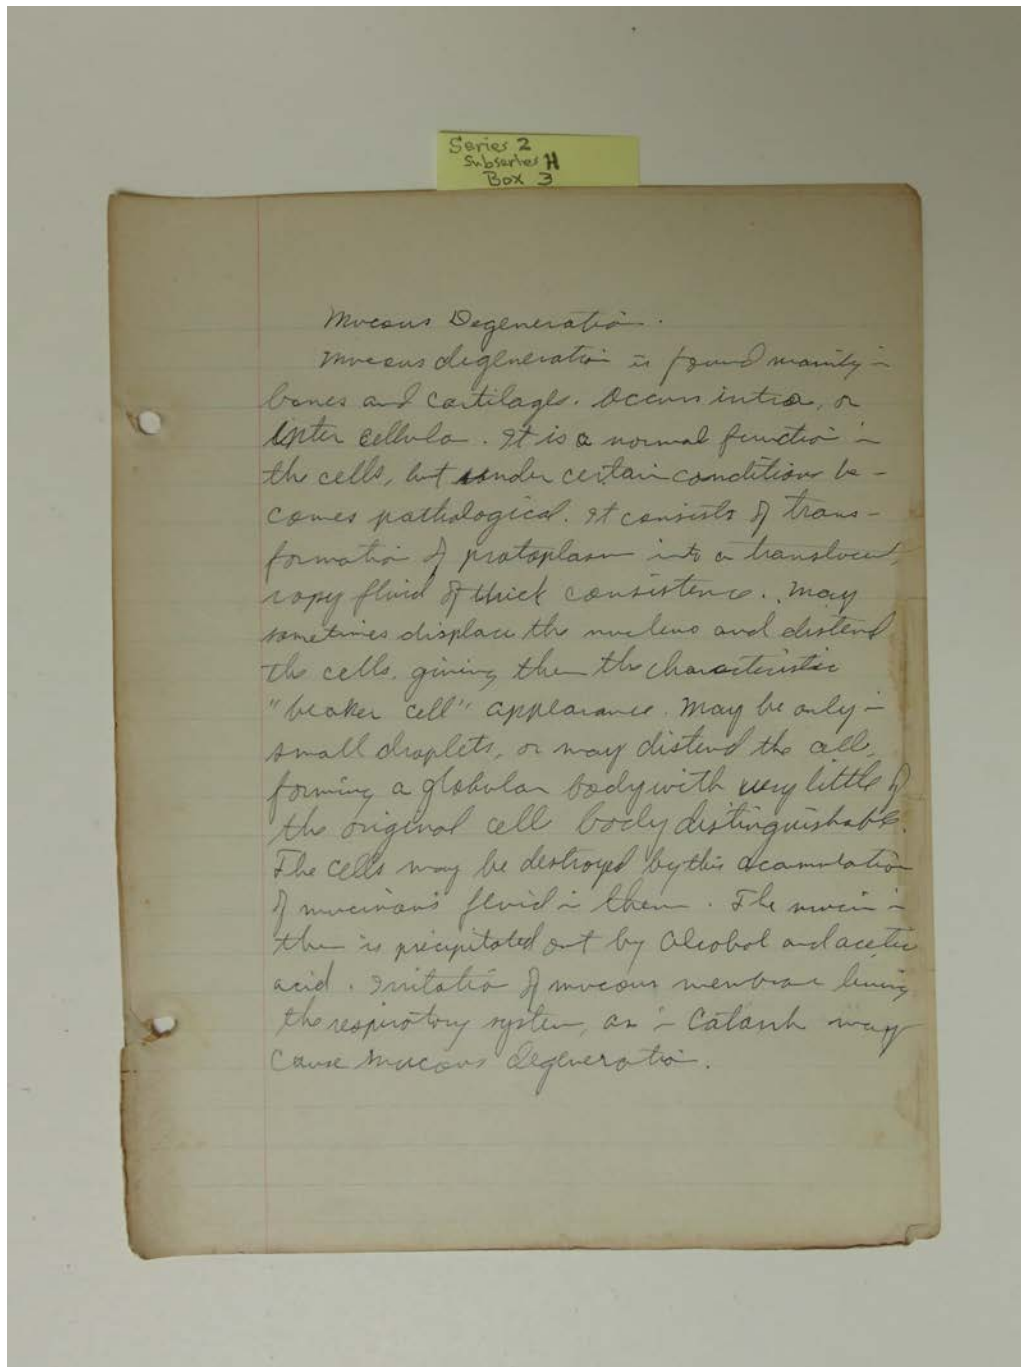 Series 2
Subseries H
Box 3
Mucous Degeneration.
Mucous degeneration is found mainly in
bones and cartilages. Occurs intra, or
inter cellula. It is a normal function in
the cells, but under certain conditions be-
comes pathological. It consists of trans-
formation of protoplasm into a translucent,
ropy fluid of thick consistence. May
sometimes displace the nucleus and distend
the cells, giving them the characteristic
"beaker cell" appearance. May be only in
small droplets, or may distend the cell,
forming a globular body with very little of
the original cell body distinguishable.
The cells may be destroyed by this acamulation
of mucinous fluid in them. The mucin in
them is precipitated out by alcohol and acetic
acid. Irritation of mucous membrane lining
the respiratory system, as in Catarrh may
cause mucous degeneration.